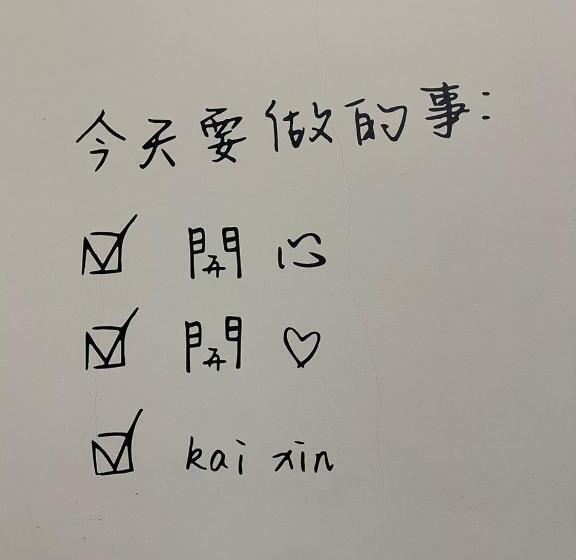 今天要做的事:
☑ 開心
☑ 開♡
☑ kai xin